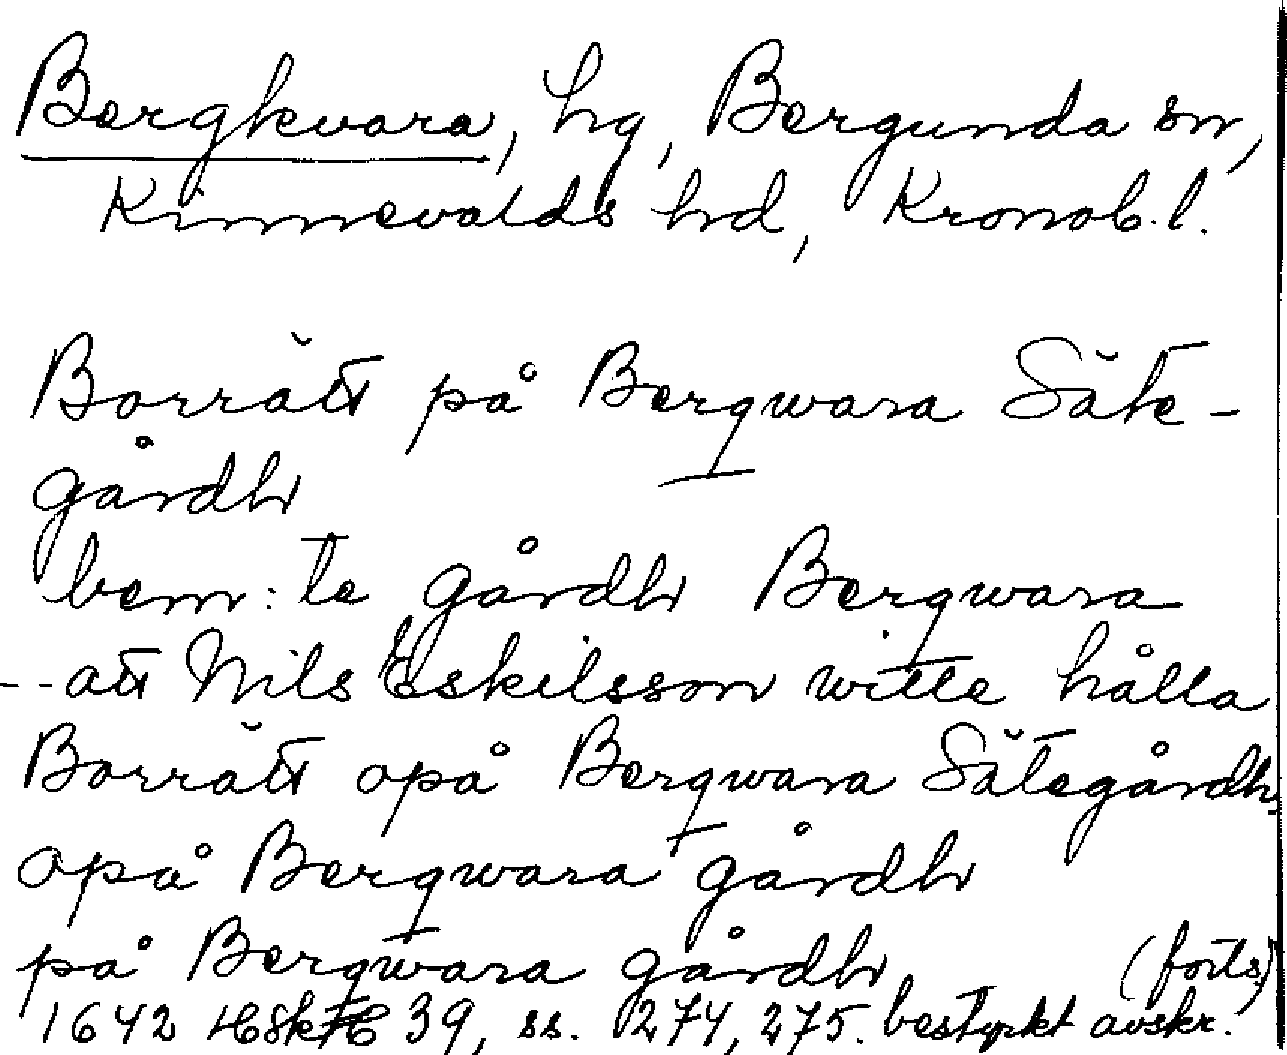 Bergkvara, hg, Bergunda sn,
Kinnevalds hd, Kronob. l.
Borrätt på Bergqwara Säte-
gårdh
bem:te gårdh Bergqwara
-- att Nils Eskilsson wille hålla
Borrätt opå Bergqwara Sätegårdh,
opå Bergqwara gårdh
på Bergqwara gårdh (forts.)
1642 39, ss. 274, 275. bestyrkt avskr.